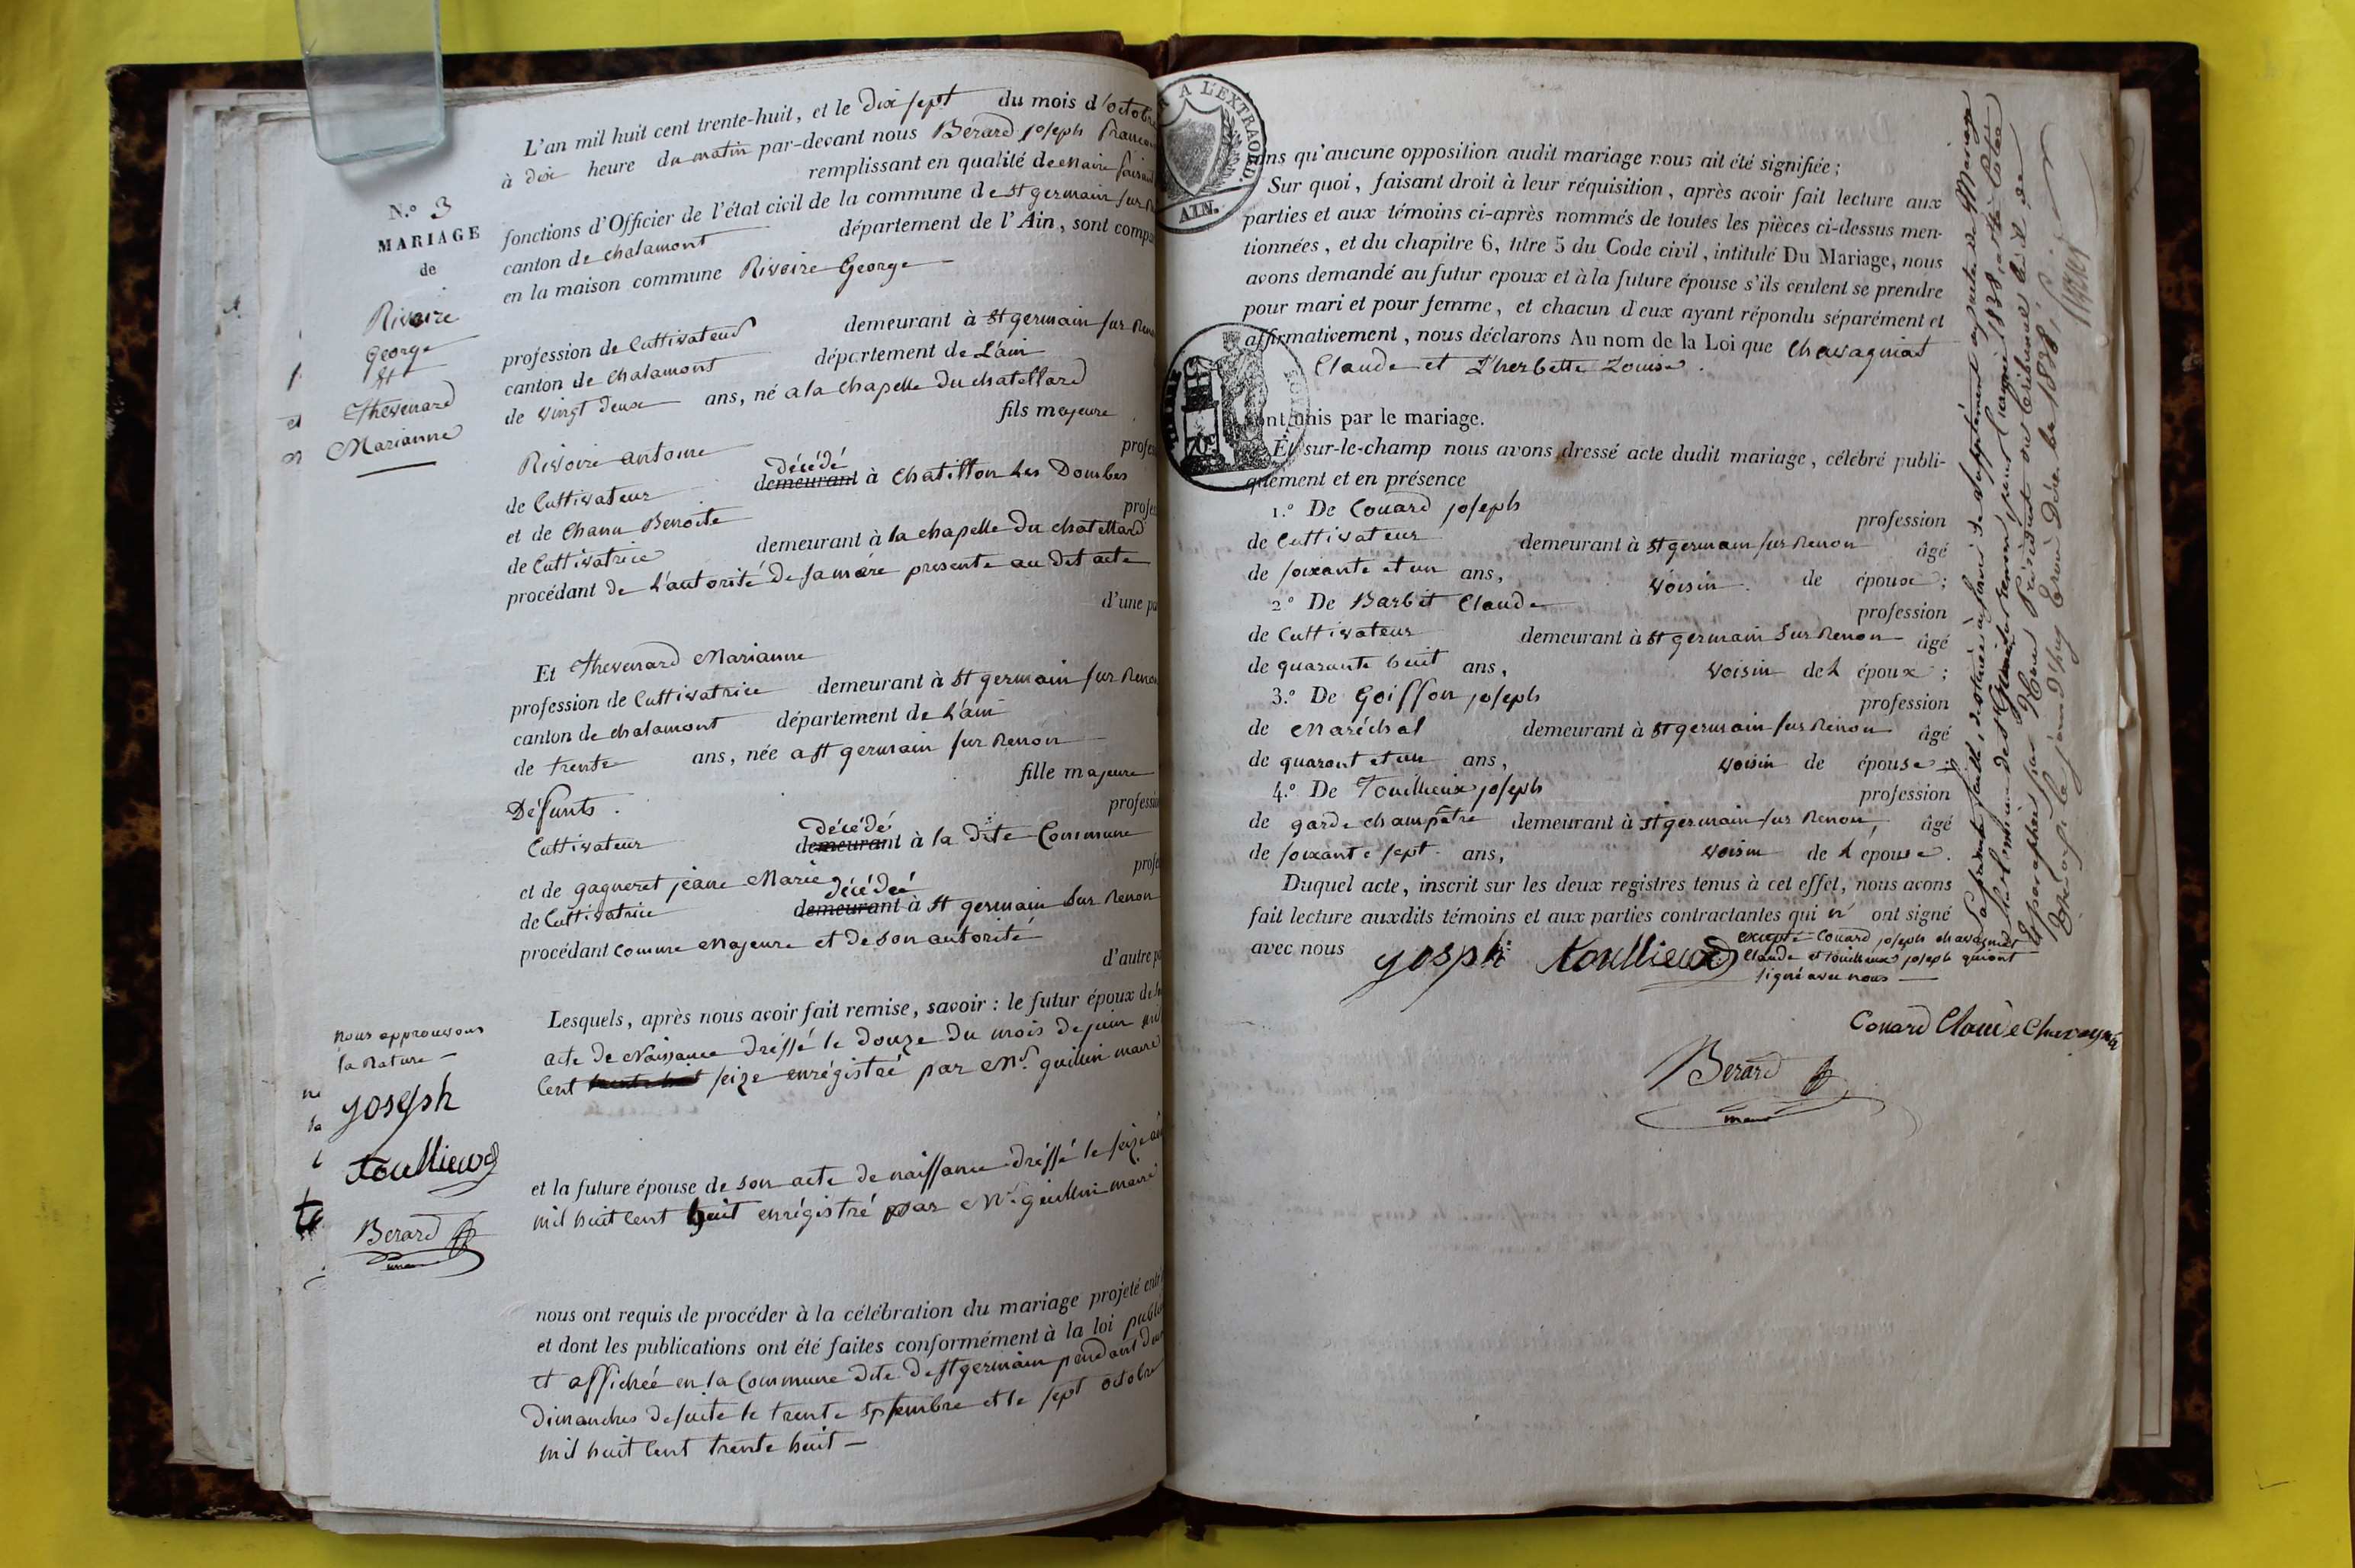 N.o 3
MARIAGE
de
Rivoire
George
Et
Thevenard
Marianne
L'an mil huit cent trente-huit, et le dix sept du mois d'octobre
à dix heure du matin par-devant nous Bérard joseph
remplissant en qualité de maire faisant
fonctions d'Officier de l'état civil de la commune de st germain sur
canton de chalamont département de l'Ain, sont
en la maison commune Rivoire George
profession de Cultivateur demeurant à st germain sur
canton de chalamont département de L'ain
de vingt deux ans, né a la chapelle Du chatellard
fils majeure
Rivoire antoine
de Cultivateur décédé demeurant à chatillon les Dombes
et de Chanu Benoite
de Cultivatrice demeurant à la chapelle Du chatellard
procédant de L'autorité de sa mère presente au dit acte
d'une
Et Thevenard Marianne
profession de Cultivatrice demeurant à st germain sur
canton de chalamont département de L'ain
de trente ans, née a st germain sur Renon
fille majeure
Défunts.
Cultivateur décédé demeurant à la dite Commune
et de gagneret jeane Marie
de Cultivatrice décédée demeurant à st germain sur Renon
procédant comme majeure et de son autorité
d'autre
Lesquels, après nous avoir fait remise, savoir : le futur époux de
acte de Naissance dréssé le douze du mois de juin mil
Cent seize enrégistré par Mr. guillin maire
nous approuvons
la Rature
joseph
toullieux
Berard
et la future épouse de son acte de naissance dréssé le seize
mil huit Cent huit enrégistré par Mr. guillin maire
nous ont requis de procéder à la célébration du mariage projeté
et dont les publications ont été faites conformément à la loi
et affichée en la Commune dite de st germain pendant
dimanches de suite le trente septembre et le sept octobre
mil huit Cent trente huit
A L'EXTRAORD.
AIN.
sans qu'aucune opposition audit mariage nous ait été signifiée;
Sur quoi, faisant droit à leur réquisition, après avoir fait lecture aux
parties et aux témoins ci-après nommés de toutes les pièces ci-dessus men-
tionnées, et du chapitre 6, titre 5 du Code civil, intitulé Du Mariage, nous
avons demandé au futur epoux et à la future épouse s'ils veulent se prendre
pour mari et pour femme, et chacun d'eux ayant répondu séparément et
affirmativement, nous déclarons Au nom de la Loi que Chavagniat
Claude et L'herbette Louise.
sont unis par le mariage.
Et sur-le-champ nous avons dressé acte dudit mariage, célébré publi-
quement et en présence
1.o De Couard joseph
profession
de Cultivateur demeurant à st germain sur Renon âgé
de soixante et un ans, voisin de épouse;
2.o De Barbet Claude
profession
de Cultivateur demeurant à st germain sur Renon âgé
de quarante huit ans, voisin de L époux;
3.o De Goiffon joseph
profession
de Maréchal demeurant à st germain sur Renon âgé
de quarant et un ans, voisin de épouse;
4.o De Touillieux joseph
profession
de garde champêtre demeurant à st germain sur Renon, âgé
de soixante sept ans, voisin de L epouse.
Duquel acte, inscrit sur les deux registres tenus à cet effet, nous avons
fait lecture auxdits témoins et aux parties contractantes qui n' ont signé
avec nous excepté Couard joseph chavagniat
Claude et touillieux joseph qui ont
signé avec nous
joseph toullieux
Couard
Berard
maire